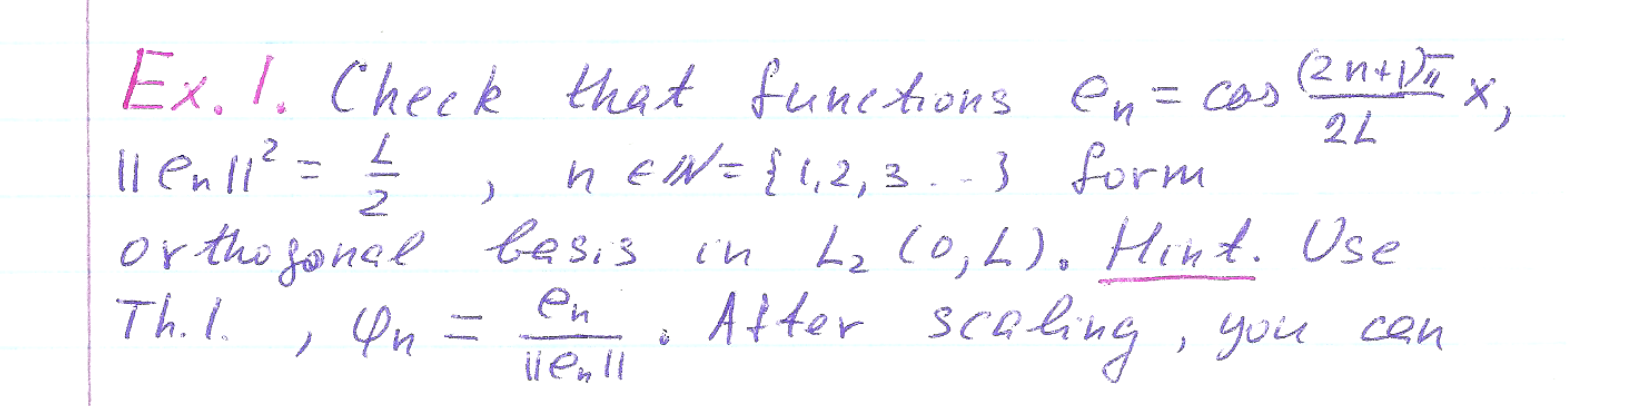 Ex. 1. Check that functions eₙ = cos (2n+1)π/2L x,
||eₙ||² = L/2 , n ∈ ℕ = {1,2,3...} form
orthogonal basis in L₂ (0,L). Hint. Use
Th.1. , φₙ = eₙ/||eₙ|| . After scaling, you can